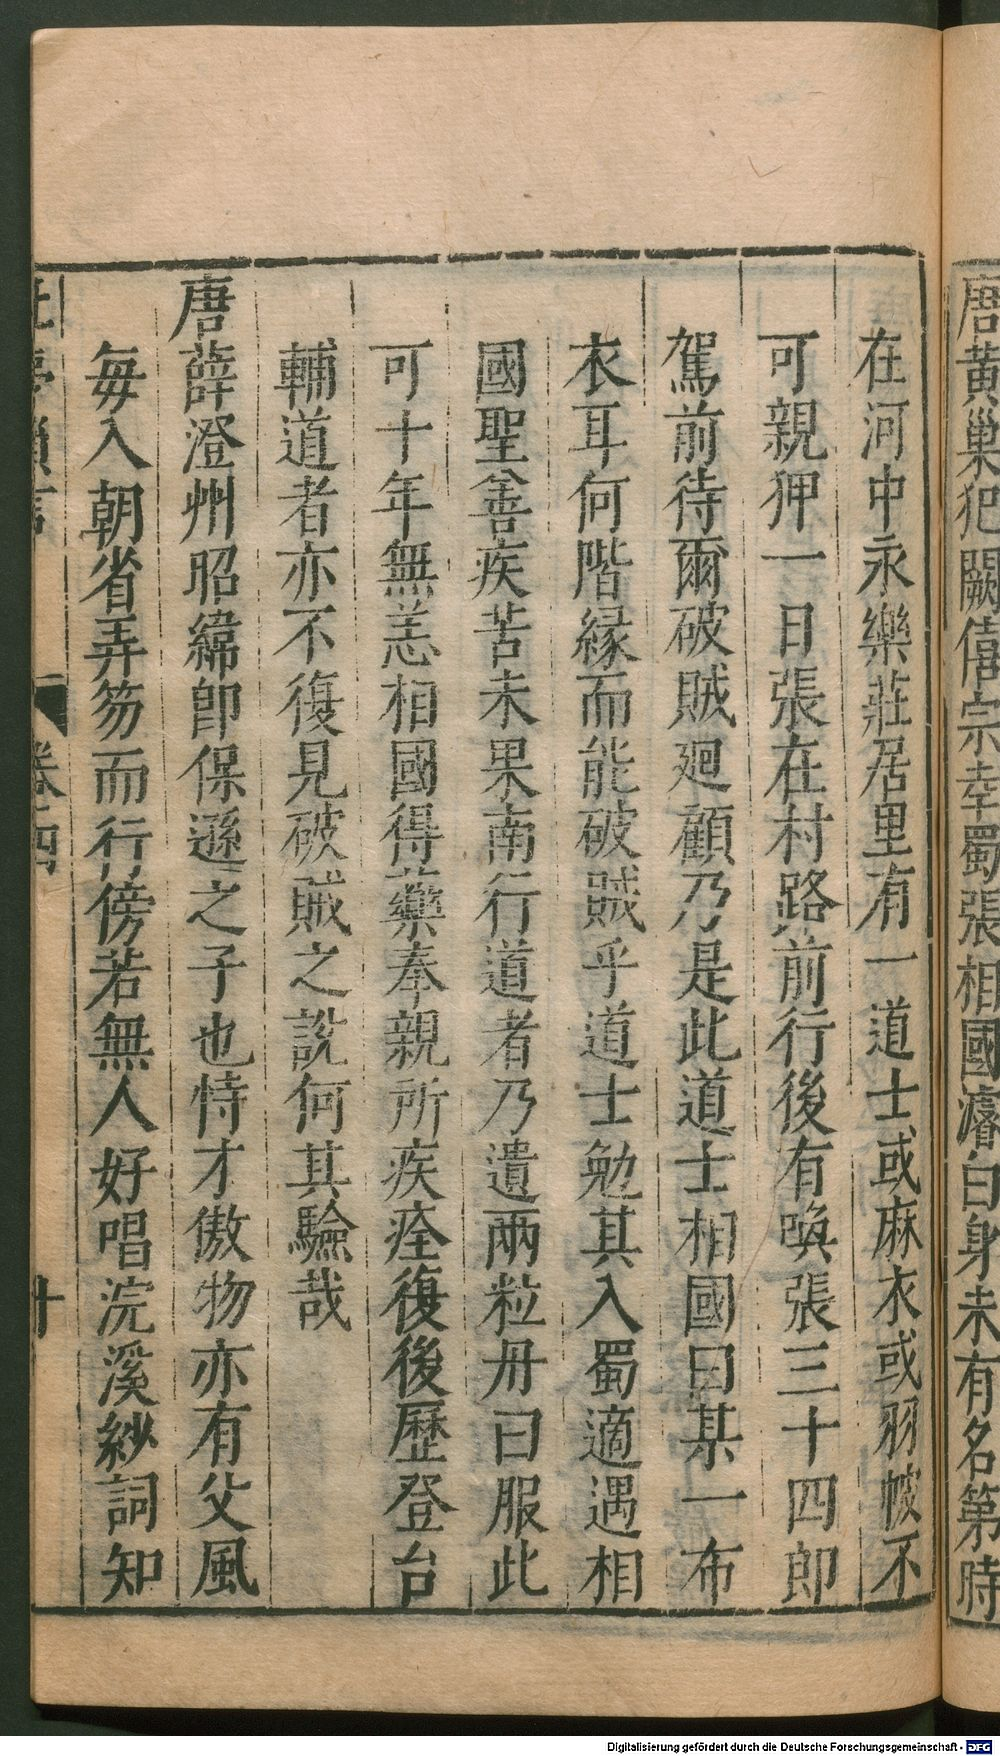 唐黃巢犯闕僖宗幸蜀張相國濬白身未有名第時
在河中永樂莊居里有一道士或麻衣或羽帔不
可親狎一日張在村路前行後有喚張三十四郎
駕前待爾破賊廻顧乃是此道士相國曰某一布
衣耳何階緣而能破賊乎道士勉其入蜀適遇相
國聖善疾苦未果南行道者乃遺兩粒丹曰服此
可十年無恙相國得藥奉親所疾痊復後歷登台
輔道者亦不復見破賊之說何其驗哉
唐薛澄州昭緯即保遜之子也恃才傲物亦有父風
每入朝省弄笏而行傍若無人好唱浣溪紗詞知
卷四
十
Digitalisierung gefördert durch die Deutsche Forschungsgemeinschaft - DFG